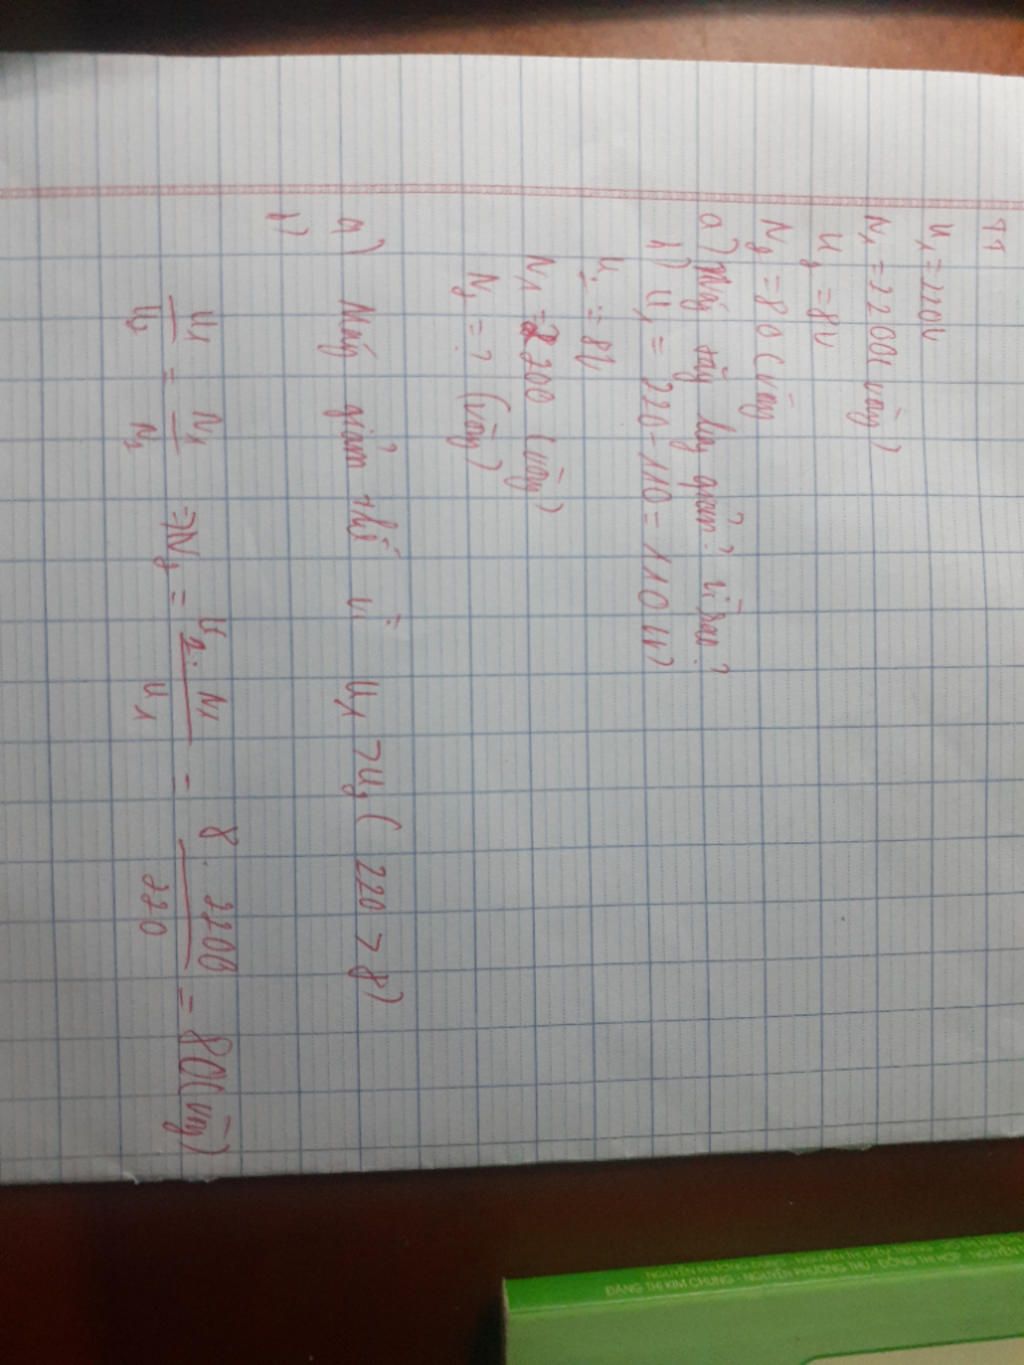 TT
U₁ = 220V
N₁ = 2200 (vòng)
U₂ = 8V
N₂ = 80 (vòng
a) Máy tăng hay giảm? vì sao?
b) U₁ = 220 - 110 = 110 V?
U₂ = 8V
N₁ = 2200 (vòng)
N₂ = ? (vòng)
a) Máy giảm thế vì U₁ > U₂ ( 220 > 8)
b)
U₁/U₂ = N₁/N₂ => N₂ = U₂. N₁/U₁ = 8. 2200/220 = 80 (vòng)
ĐẶNG THỊ KIM CHUNG - NGUYỄN PHƯƠNG THU - ĐỒNG THỊ